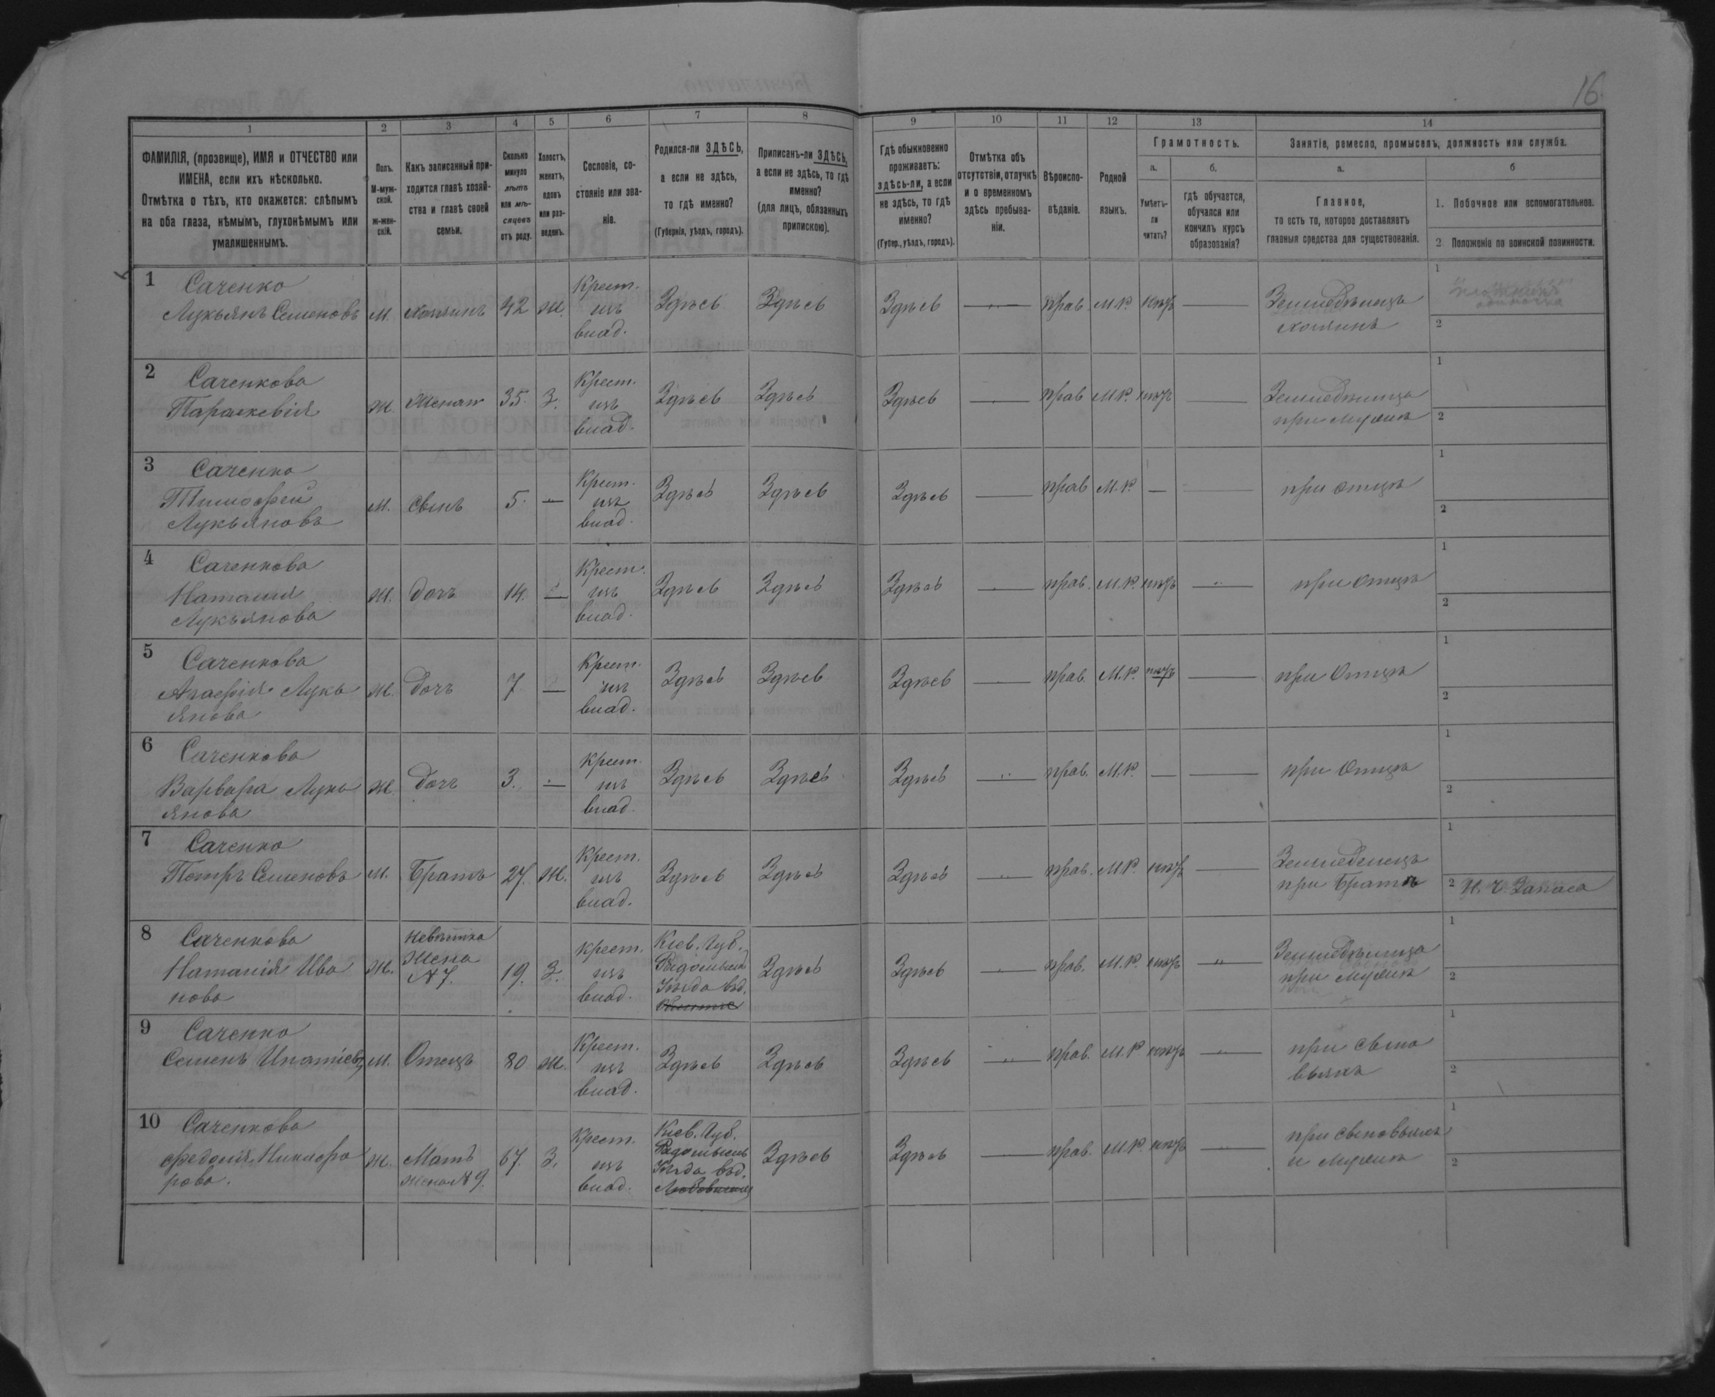 16
1 2 3 4 5 6 7 8 9 10 11 12 13 14
ФАМИЛІЯ, (прозвище), ИМЯ и ОТЧЕСТВО или
ИМЕНА, если ихъ нѣсколько.
Отмѣтка о тѣхъ, кто окажется: слѣпымъ
на оба глаза, нѣмымъ, глухонѣмымъ или
умалишеннымъ.
Полъ.
М-муж-
ской.
ж-жен-
скій.
Какъ записанный при-
ходится главѣ хозяй-
ства и главѣ своей
семьи.
Сколько
минуло
лѣтъ
или мѣ-
сяцевъ
отъ роду.
Холостъ,
женатъ,
вдовъ
или раз-
веденъ.
Сословіе, со-
стояніе или зва-
ніе.
Родился-ли ЗДѢСЬ,
а если не здѣсь,
то гдѣ именно?
(Губернія, уѣздъ, городъ).
Приписанъ-ли ЗДѢСЬ,
а если не здѣсь, то гдѣ
именно?
(для лицъ, обязанныхъ
припискою).
Гдѣ обыкновенно
проживаетъ:
здѣсь-ли, а если
не здѣсь, то гдѣ
именно?
(Губер., уѣздъ, городъ).
Отмѣтка объ
отсутствіи, отлучкѣ
и о временномъ
здѣсь пребыва-
ніи.
Вѣроиспо-
вѣданіе.
Родной
языкъ.
Грамотность.
а.
Умѣетъ-
ли
читать?
б.
гдѣ обучается,
обучался или
кончилъ курсъ
образованія?
Занятіе, ремесло, промыселъ, должность или служба.
а.
Главное,
то есть то, которое доставляетъ
главныя средства для существованія.
б
1. Побочное или вспомогательное.
2. Положеніе по воинской повинности.
1 Саченко
Лукьянъ Семеновъ м. хозяинъ 42 ж. Крест. изъ влад. Здѣсь Здѣсь Здѣсь — прав. М.Р. нѣтъ — Земледѣлецъ
хозяинъ
1
2
2 Саченкова
Параскевія ж. жена 35. З. Крест. изъ влад. Здѣсь Здѣсь Здѣсь — прав. М.Р. нѣтъ — Земледѣлица
при мужѣ
1
2
3 Саченко
Тимофей
Лукьяновъ м. сынъ 5. — Крест. изъ влад. Здѣсь Здѣсь Здѣсь — прав М.Р. — — при отцѣ
1
2
4 Саченкова
Наталия
Лукьянова ж. дочь 14. — Крест. изъ влад. Здѣсь Здѣсь Здѣсь — прав. М.Р. нѣтъ — при отцѣ
1
2
5 Саченкова
Агафія Лукь
янова ж. дочь 7 — Крест. изъ влад. Здѣсь Здѣсь Здѣсь — прав. М.Р. нѣтъ — при отцѣ
1
2
6 Саченкова
Варвара Лукь
янова ж. дочь 3. — Крест. изъ влад. Здѣсь Здѣсь Здѣсь — прав. М.Р. — — при отцѣ
1
2
7 Саченко
Петръ Семеновъ м. Братъ 27. ж. Крест. изъ влад. Здѣсь Здѣсь Здѣсь — прав. М.Р. нѣтъ — Земледелецъ
при братѣ
1
2 Н. Ч. Запаса
8 Саченкова
Наталія Ива
нова ж. невѣстка
жена
№ 7. 19. З. Крест. изъ влад. Кіев. Губ.
Радомысль
Уѣзда Здѣсь Здѣсь — прав. М.Р. нѣтъ — Земледѣлица
при мужѣ
1
2
9 Саченко
Семенъ Ипатіевъ м. Отецъ 80 ж. Крест. изъ влад. Здѣсь Здѣсь Здѣсь — прав. М.Р. нѣтъ — при сыно
вьяхъ
1
2
10 Саченкова
Федосія Никифо
рова. ж. Мать
жена № 9. 67. З. Крест. изъ влад. Кіев. Губ.
Радомысль
Уѣзда Здѣсь Здѣсь — прав. М.Р. нѣтъ — при сыновьяхъ
и мужѣ
1
2